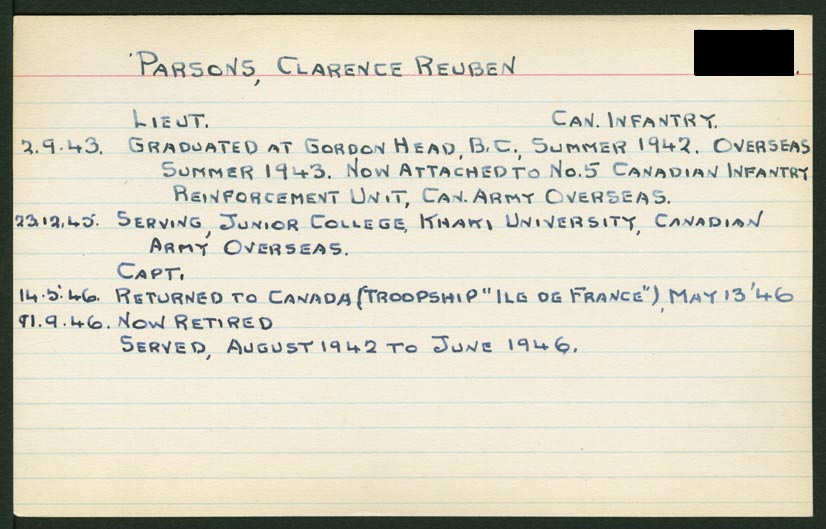 PARSONS, CLARENCE REUBEN
LIEUT. CAN. INFANTRY.
2.9.43. GRADUATED AT GORDON HEAD, B.C., SUMMER 1942. OVERSEAS
SUMMER 1943. NOW ATTACHED TO NO.5 CANADIAN INFANTRY
REINFORCEMENT UNIT, CAN. ARMY OVERSEAS.
23.12.45. SERVING, JUNIOR COLLEGE, KHAKI UNIVERSITY, CANADIAN
ARMY OVERSEAS.
CAPT.
14.5.46. RETURNED TO CANADA (TROOPSHIP "ILE DE FRANCE"), MAY 13 '46
11.9.46. NOW RETIRED
SERVED, AUGUST 1942 TO JUNE 1946.